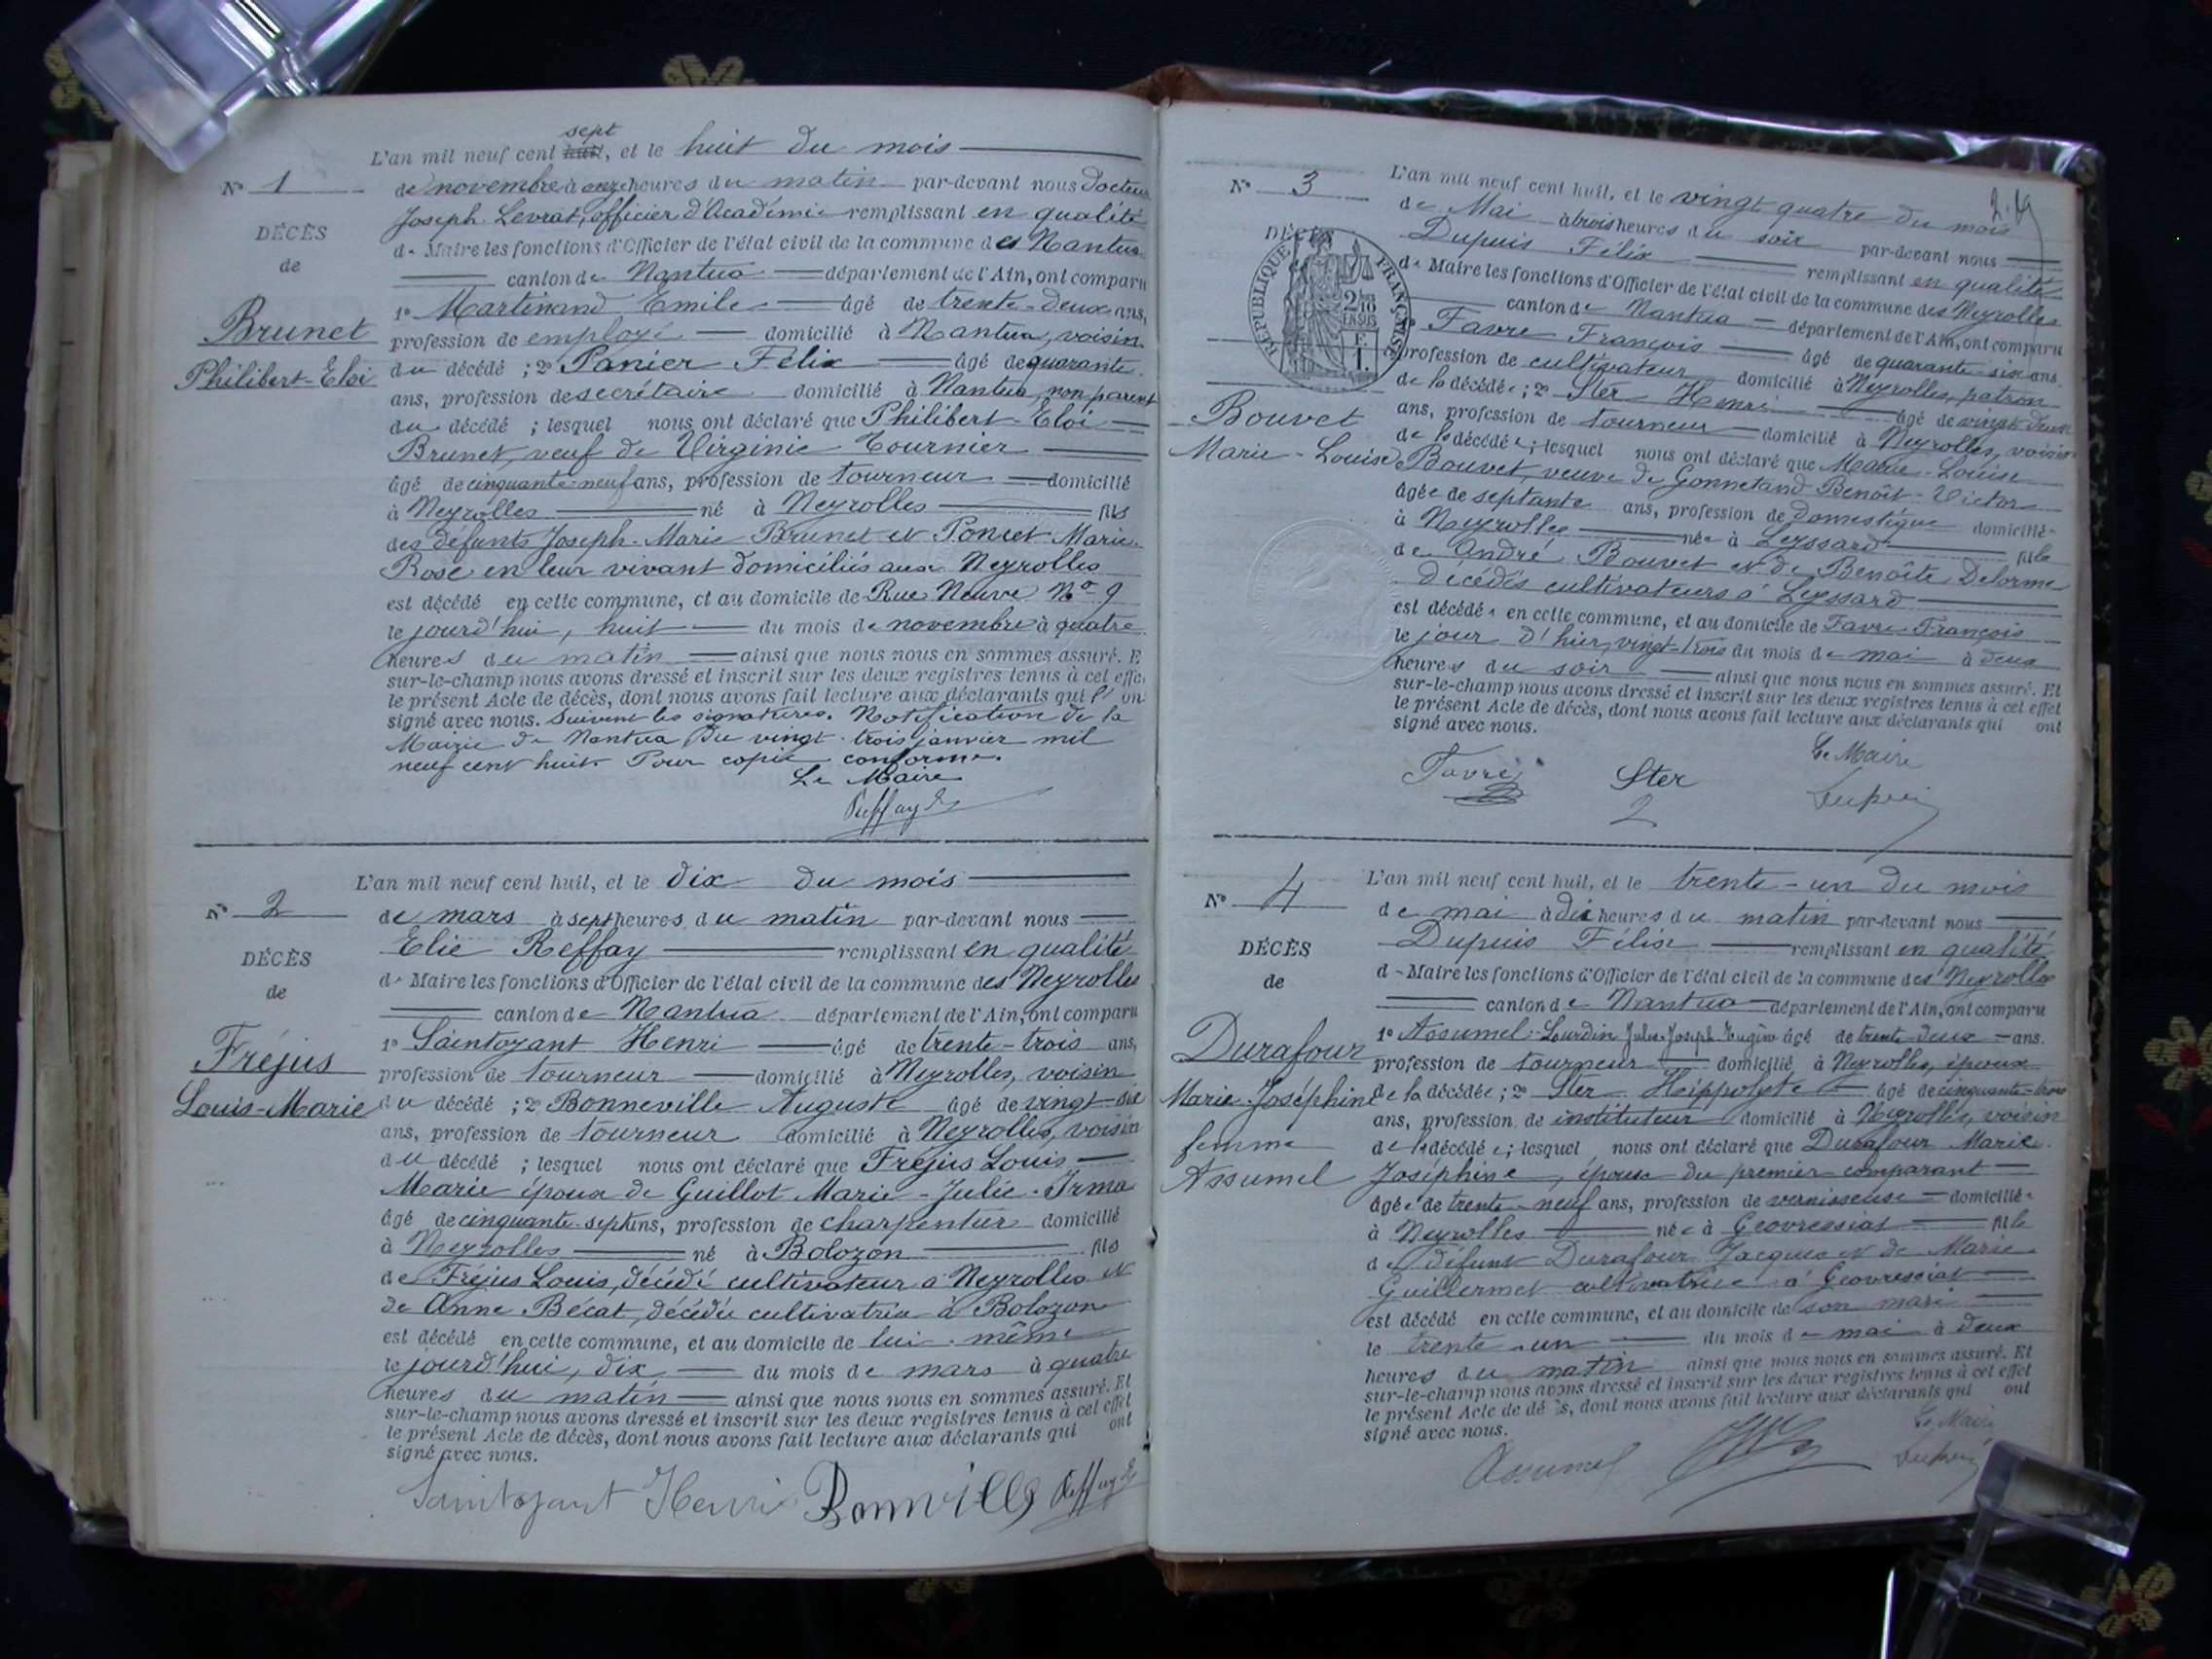 L'an mil neuf cent huit, et le huit du mois
sept
N° 1
de novembre à onze heures du matin par-devant nous Docteur
Joseph Levrat, officier d'Académie remplissant en qualité
DÉCÈS
de Maire les fonctions d'Officier de l'état civil de la commune des Nantua
de
canton de Nantua département de l'Ain, ont comparu
1° Martinand Emile âgé de trente-deux ans,
Brunet
profession de employé domicilié à Nantua, voisin
Philibert-Eloi
du décédé ; 2° Panier Félix âgé de quarante
ans, profession de secrétaire domicilié à Nantua, non parent
du décédé ; lesquel nous ont déclaré que Philibert-Eloi
Brunet, veuf de Virginie Tournier
âgé de cinquante-neuf ans, profession de tourneur domicilié
à Neyrolles né à Neyrolles fils
des défunts Joseph-Marie Brunet et Poncet Marie-
Rose en leur vivant domiciliés aux Neyrolles
est décédé en cette commune, et au domicile de Rue Neuve N° 9
le jourd'hui, huit du mois de novembre à quatre
heures du matin ainsi que nous nous en sommes assuré. E
sur-le-champ nous avons dressé et inscrit sur les deux registres tenus à cet effe
le présent Acte de décès, dont nous avons fait lecture aux déclarants qui l' on
signé avec nous. Suivent les signatures. Notification de la
Mairie de Nantua du vingt-trois janvier mil
neuf cent huit. Pour copie conforme.
Le Maire
Reffay E
L'an mil neuf cent huit, et le dix du mois
N° 2
de mars à sept heures du matin par-devant nous
Elie Reffay remplissant en qualité
DÉCÈS
de Maire les fonctions d'Officier de l'état civil de la commune des Neyrolles
de
canton de Nantua département de l'Ain, ont comparu
1° Saintoyant Henri âgé de trente-trois ans,
Fréjus
profession de tourneur domicilié à Neyrolles, voisin
Louis-Marie
du décédé ; 2° Bonneville Auguste âgé de vingt-six
ans, profession de tourneur domicilié à Neyrolles, voisin
du décédé ; lesquel nous ont déclaré que Fréjus Louis
Marie époux de Guillot Marie-Julie-Irma
âgé de cinquante-sept ans, profession de charpentier domicilié
à Neyrolles né à Bolozon fils
de Fréjus Louis, décédé cultivateur à Neyrolles et
de Anne Bécat, décédée cultivatrice à Bolozon
est décédé en cette commune, et au domicile de lui-même
le jourd'hui, dix du mois de mars à quatre
heures du matin ainsi que nous nous en sommes assuré. Et
sur-le-champ nous avons dressé et inscrit sur les deux registres tenus à cet effet
le présent Acte de décès, dont nous avons fait lecture aux déclarants qui ont
signé avec nous.
Saintoyant Henri Bonneville Reffay E
L'an mil neuf cent huit, et le vingt quatre du mois
N° 3
de Mai à trois heures du soir par-devant nous
DÉCÈS
Dupuis Félix remplissant en qualité
RÉPUBLIQUE FRANÇAISE
de Maire les fonctions d'Officier de l'état civil de la commune des Neyrolles
canton de Nantua département de l'Ain, ont comparu
1° Favre François âgé de quarante-six ans
profession de cultivateur domicilié à Neyrolles, patron
de la décédée ; 2° Ster Henri âgé de vingt-deux
Bouvet
ans, profession de tourneur domicilié à Neyrolles, voisin
Marie-Louise
de la décédée ; lesquel nous ont déclaré que Marie-Louise
Bouvet, veuve de Gonnetand Benoît-Victor
âgée de septante ans, profession de domestique domiciliée
à Neyrolles née à Leyssard fille
de André Bouvet et de Benoîte Delorme
décédés cultivateurs à Leyssard
est décédée en cette commune, et au domicile de Favre François
le jour d'hier, vingt-trois du mois de mai à deux
heures du soir ainsi que nous nous en sommes assuré. Et
sur-le-champ nous avons dressé et inscrit sur les deux registres tenus à cet effet
le présent Acte de décès, dont nous avons fait lecture aux déclarants qui ont
signé avec nous.
Le Maire
Favre Ster Dupuis
L'an mil neuf cent huit, et le trente-un du mois
N° 4
de mai à dix heures du matin par-devant nous
Dupuis Félix remplissant en qualité
DÉCÈS
de Maire les fonctions d'Officier de l'état civil de la commune des Neyrolles
de
canton de Nantua département de l'Ain, ont comparu
1° Assumel-Lourdin Jules-Joseph-Eugène âgé de trente-deux ans.
Durafour
profession de tourneur domicilié à Neyrolles, époux
Marie-Joséphine
de la décédée ; 2° Ster Hippolyte âgé de cinquante-trois
ans, profession de instituteur domicilié à Neyrolles, voisin
femme
de la décédée ; lesquel nous ont déclaré que Durafour Marie-
Assumel
Joséphine, épouse du premier comparant
âgée de trente-neuf ans, profession de vernisseuse domiciliée
à Neyrolles née à Géovressiat fille
de défunt Durafour Jacques et de Marie
Guillermet cultivatrice à Géovressiat
est décédé en cette commune, et au domicile de son mari
le trente-un du mois de mai à deux
heures du matin ainsi que nous nous en sommes assuré. Et
sur-le-champ nous avons dressé et inscrit sur les deux registres tenus à cet effet
le présent Acte de décès, dont nous avons fait lecture aux déclarants qui ont
signé avec nous.
Le Maire
Assumel Dupuis